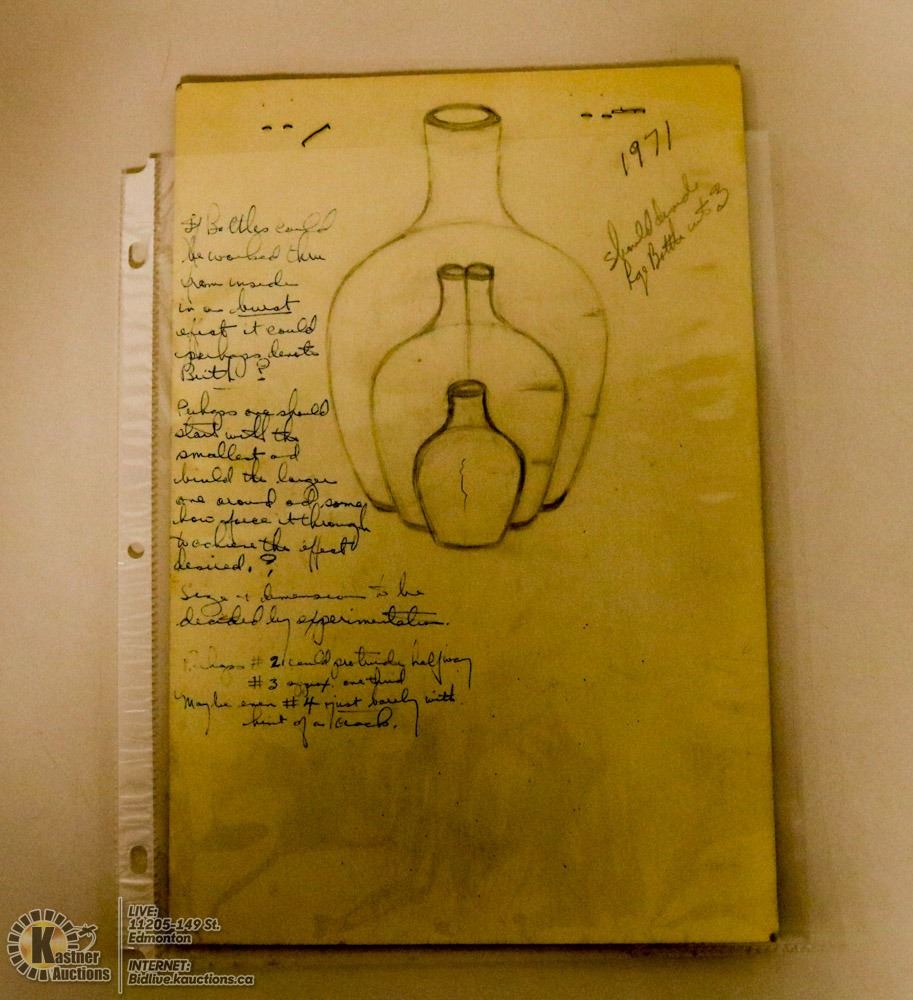 1971
Should
lge Bottle into 3
If Bottles could
be worked thru
from inside
in a burst
effect it could
perhaps denote
Birth ?
Perhaps one should
start with the
smallest and
build the larger
one around and some
how force it through
to achieve the effect
desired. ?
Size & dimension to be
decided by experimentation.
Perhaps # 2 could protrude halfway
# 3 approx. one third
Maybe even # 4 just barely with
hint of a crack.
Kastner
Auctions
LIVE:
11205-149 St.
Edmonton
INTERNET:
Bidlive.kauctions.ca